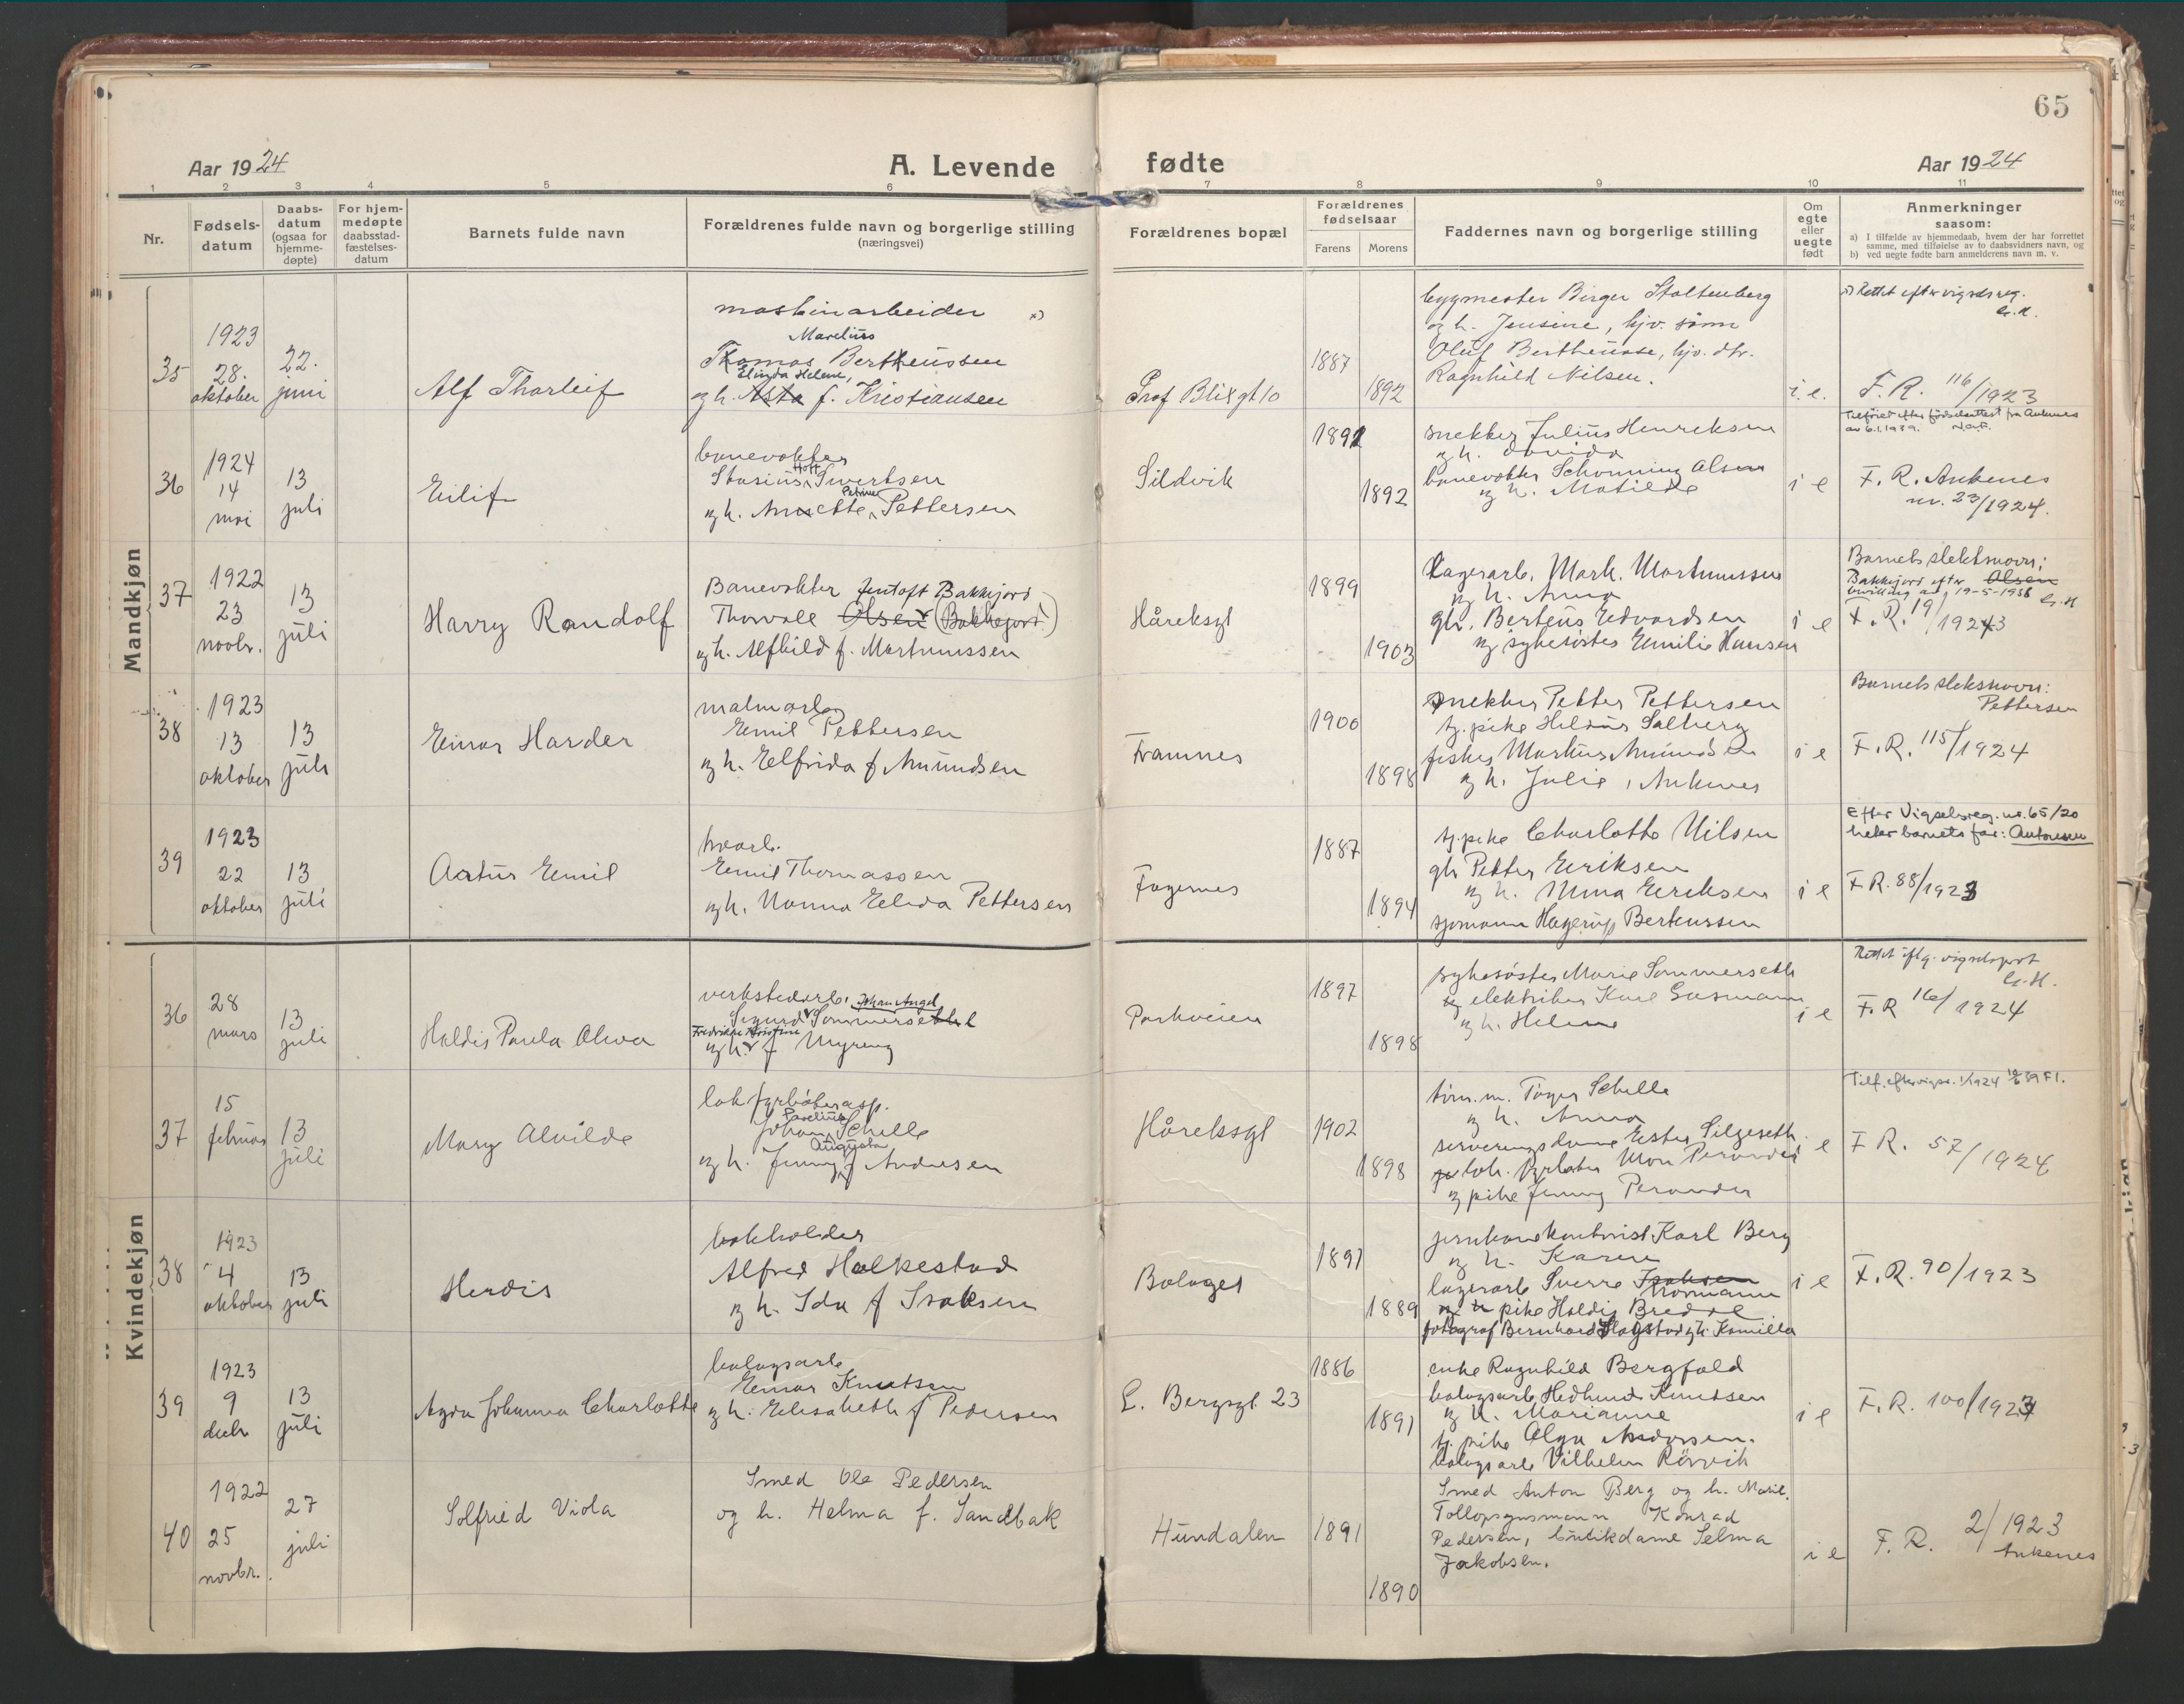 65
Aar 1924
A. Levende fødte
Aar 1924
1 2 3 4 5 6 7 8 9 10 11
Nr.
Fødsels-
datum
Daabs-
datum
(ogsaa for
hjemme-
døpte)
For hjem-
medøpte
daabsstad-
fæstelses-
datum
Barnets fulde navn
Forældrenes fulde navn og borgerlige stilling
(næringsvei)
Forældrenes bopæl
Forældrenes
fødselsaar
Farens
Morens
Faddernes navn og borgerlige stilling
Om
egte
eller
uegte
født
Anmerkninger
saasom:
a) I tilfælde av hjemmedaab, hvem der har forrettet
samme, med tilføielse av to daabsvidners navn, og
b) ved uegte fødte barn anmelderens navn m. v.
Mandkjøn
35
1923
28.
oktober
22.
juni
Alf Thorleif
maskinarbeider x)
Marelius
Thomas Bertheussen
Elinda Helene,
og h. Asta f. Kristiansen
Prof Blixgt 10
1887
1892
bygmester Birger Stoltenberg
og h. Jensine, hjv. sønn
Oluf Bertheusse, hjv. dtr.
Ragnhild Nilsen.
i. e.
x) Rettet efter vigselsreg.
F. R. 116/1923
36
1924
14
mai
13
juli
Eilif
banevokter
Hoff
Stasius Sivertsen
Petrine
og h. Annette Pettersen
Sildvik
1891
1892
snekker Julius Henriksen
og h. Davida
banevokter Schonning Olsen
og h. Matilde
i e
Tilføiet efter fødselsattest fra Ankenes
av 6.1.1939.
F. R. Ankenes
nr. 23/1924.
37
1922
23
novbr.
13
juli
Harry Randolf
Banevokter Jentoft Bakkejord
Thorvald Olsen (Bakkejord)
og h. Alfhild f. Martinussen
Håreksgt
1899
1903
Lagerarb. Mark. Martinussen
og h. Anna
gh. Bertens Edvardsen
og sykesøster Emilie Hansen
i e
Barnets slektsnavn;
Bakkejord efter Olsen
bevilling av 19-5-1938
F. R. 19/1923
38
1923
13
oktober
13
juli
Einar Harder
malmarb.
Emil Pettersen
og h. Elfrida f Amundsen
Framnes
1900
1898
Snekker Petter Pettersen
tj. pike Heldur Salberg
fisker Markus Amundsen
og h. Julie, Ankenes
i e
Barnets sleksnavn:
Pettersen
F. R. 115/1924
39
1923
22
oktober
13
juli
Artur Emil
hvarb.
Emil Thomassen
og h. Nanna Elida Pettersen
Fagernes
1887
1894
tj. pike Charlotte Nilsen
gh Petter Eriksen
og h. Nina Eriksen
sjømann Hagerup Berteussen
i e
Efter Vigselsreg. nr. 65/20
heter barnets far: Antonsen
F R. 88/1923
Kvindekjøn
36
28
mars
13
juli
Haldis Paula Oliva
verkstedarb. Johan Angel
Sigurd Sommerseth
Fredrikke Kristine
og h. f Myreng
Parkveien
1897
1898
sykesøster Marie Sommerseth
og elektriker Karl Gasmann
og h. Helene
i e
Rettet iflg. vigselsprot
F. R 16/1924
37
15
februar
13
juli
Mary Alvilde
lok fyrbøterasp.
Paulius
Johan Schille
Augusta
og h. Jenny f Andresen
Håreksgt
1902
1898
tøm. m. Toger Schille
og h. Anna
serveringsdame Ester Silgeseth
lok. fyrbøter Mon Perander
og pike Jenny Perander
i e
Tilf. efter vigsr. 1/1924
F R. 57/1924
38
1923
4
oktober
13
juli
Herdis
bokholder
Alfred Halkestad
og h. Ida f Isaksen
Bolaget
1891
1889
jernbanekontorist Karl Berg
og h. Karen
lagerarb Sverre Isaksen
Normann
og h pike Haldis Bredal
fotograf Bernhard Hagstad og h. Kamilla
i e
F. R. 90/1923
39
1923
9
decbr
13
juli
Agda Johanna Charlotte
bolagsarb
Einar Knutsen
og h. Elisabeth f Pedersen
L. Bergsgt. 23
1886
1891
enke Ragnhild Bergfald
bolagsarb Hedlund Knudsen
og h. Marianne
tj. pike Olga Andorsen.
bolagsarb Vilhelm Rørvik
i e
F. R. 100/1923
40
1922
25
novbr.
27
juli
Solfried Viola
Smed Ole Pedersen
og h. Helma f. Sandbak
Hundalen
1891
1890
Smed Anton Berg og h. Maril.
Tollopsynsmann Konrad
Pedersen, butikdame Selma
Jakobsen.
i e
F. R. 2/1923
Ankenes